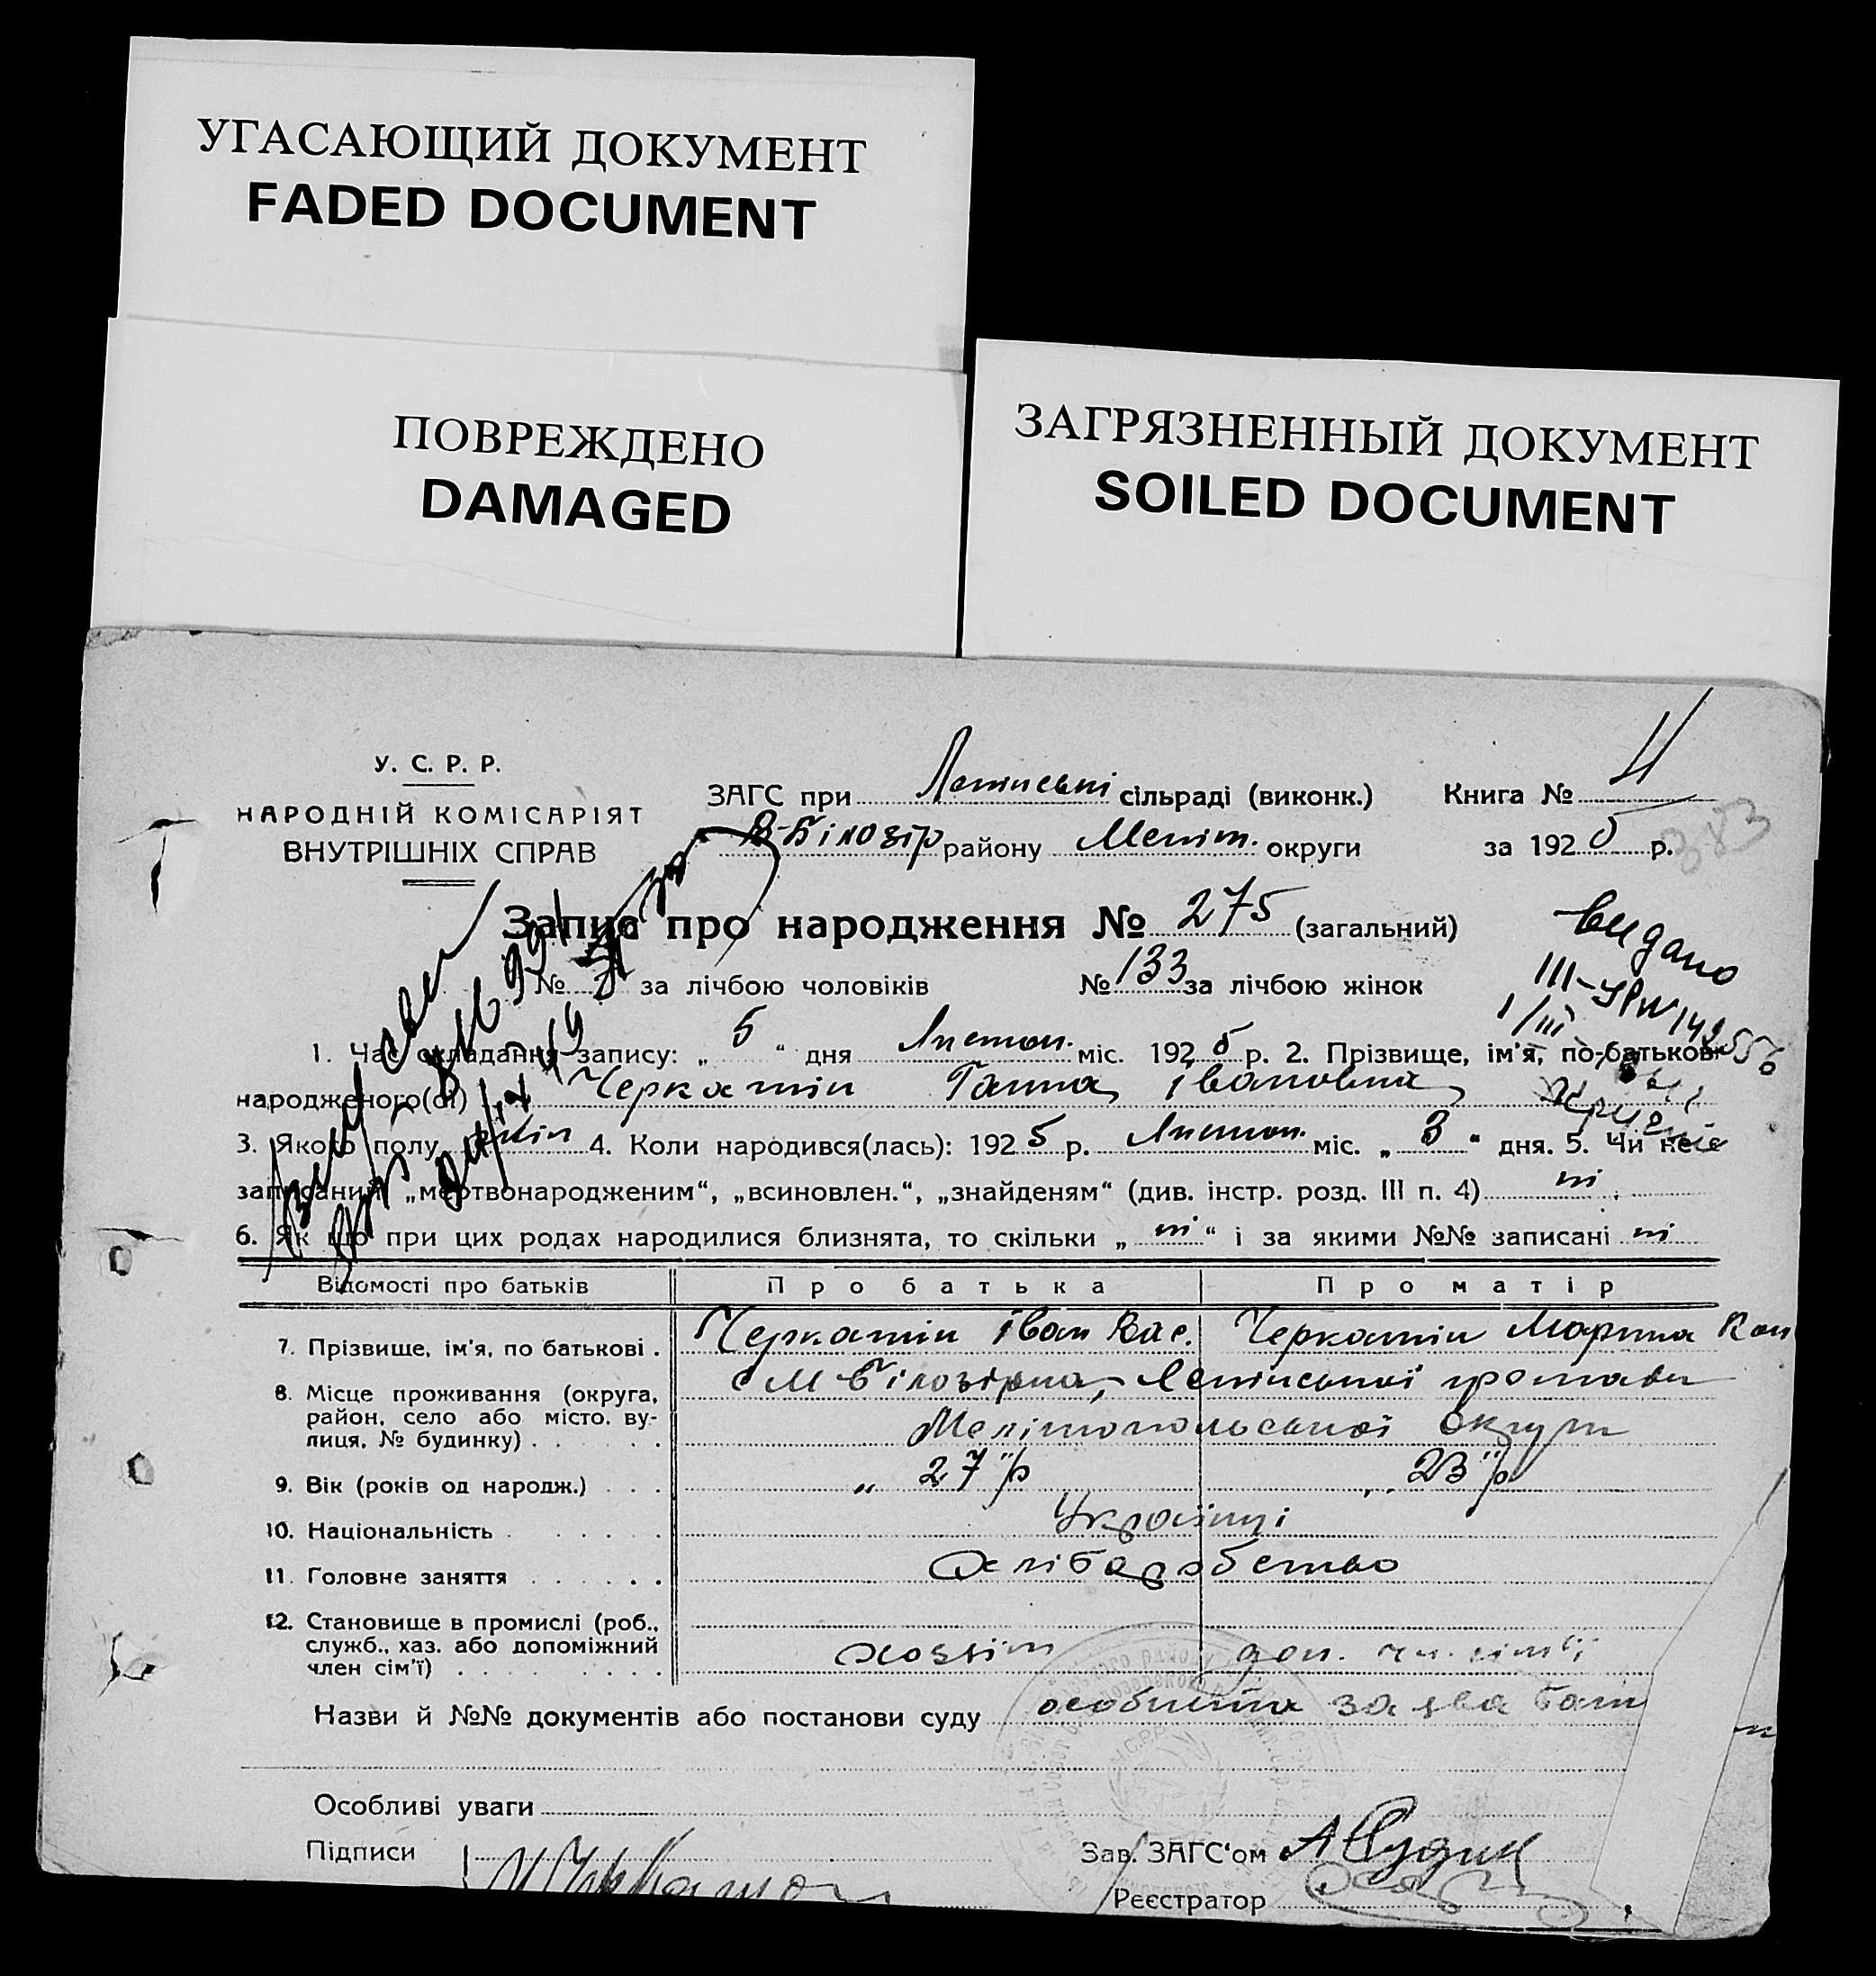 УГАСАЮЩИЙ ДОКУМЕНТ
FADED DOCUMENT
ПОВРЕЖДЕНО
DAMAGED
ЗАГРЯЗНЕННЫЙ ДОКУМЕНТ
SOILED DOCUMENT
У. С. Р. Р.
НАРОДНІЙ КОМІСАРІЯТ
ВНУТРІШНІХ СПРАВ
ЗАГС при Ленінські сільраді (виконк.) Книга №
В-Білозір району Меліт. округи за 1925 р.
383
Запис про народження № 275 (загальний)
№ за лічбою чоловіків № 133 за лічбою жінок
видано
1. Час складання запису: „ 5 “ дня Листоп. міс. 1925 р. 2. Прізвище, ім'я, по-батькові
народженого(ої) Ганна Івановна
3. Якого полу 4. Коли народився(лась): 1925 р. Листоп. міс. „ 3 “ дня. 5. Чи не є
записаний „мертвонародженим“, „всиновлен.“, „знайденям“ (див. інстр. розд. III п. 4) ні
6. Як що при цих родах народилися близнята, то скільки „ ні “ і за якими №№ записані ні
Відомості про батьків Про батька Про матір
7. Прізвище, ім'я, по батькові . Іван Вас. Марина
8. Місце проживання (округа, район, село або місто, вулиця, № будинку) . М Білозірка, Ленінської громади
Мелітопольської округи
9. Вік (років од народж.) . . . „ 27 „ р 23 „ р
10. Національність . Українці
11. Головне заняття . Хліборобство
12. Становище в промислі (роб., служб., хаз. або допоміжний член сім'ї) . хозяін доп. чл. сім'ї
Назви й №№ документів або постанови суду особиста за два
Особливі уваги
Підписи
Зав. ЗАГС'ом
Реєстратор